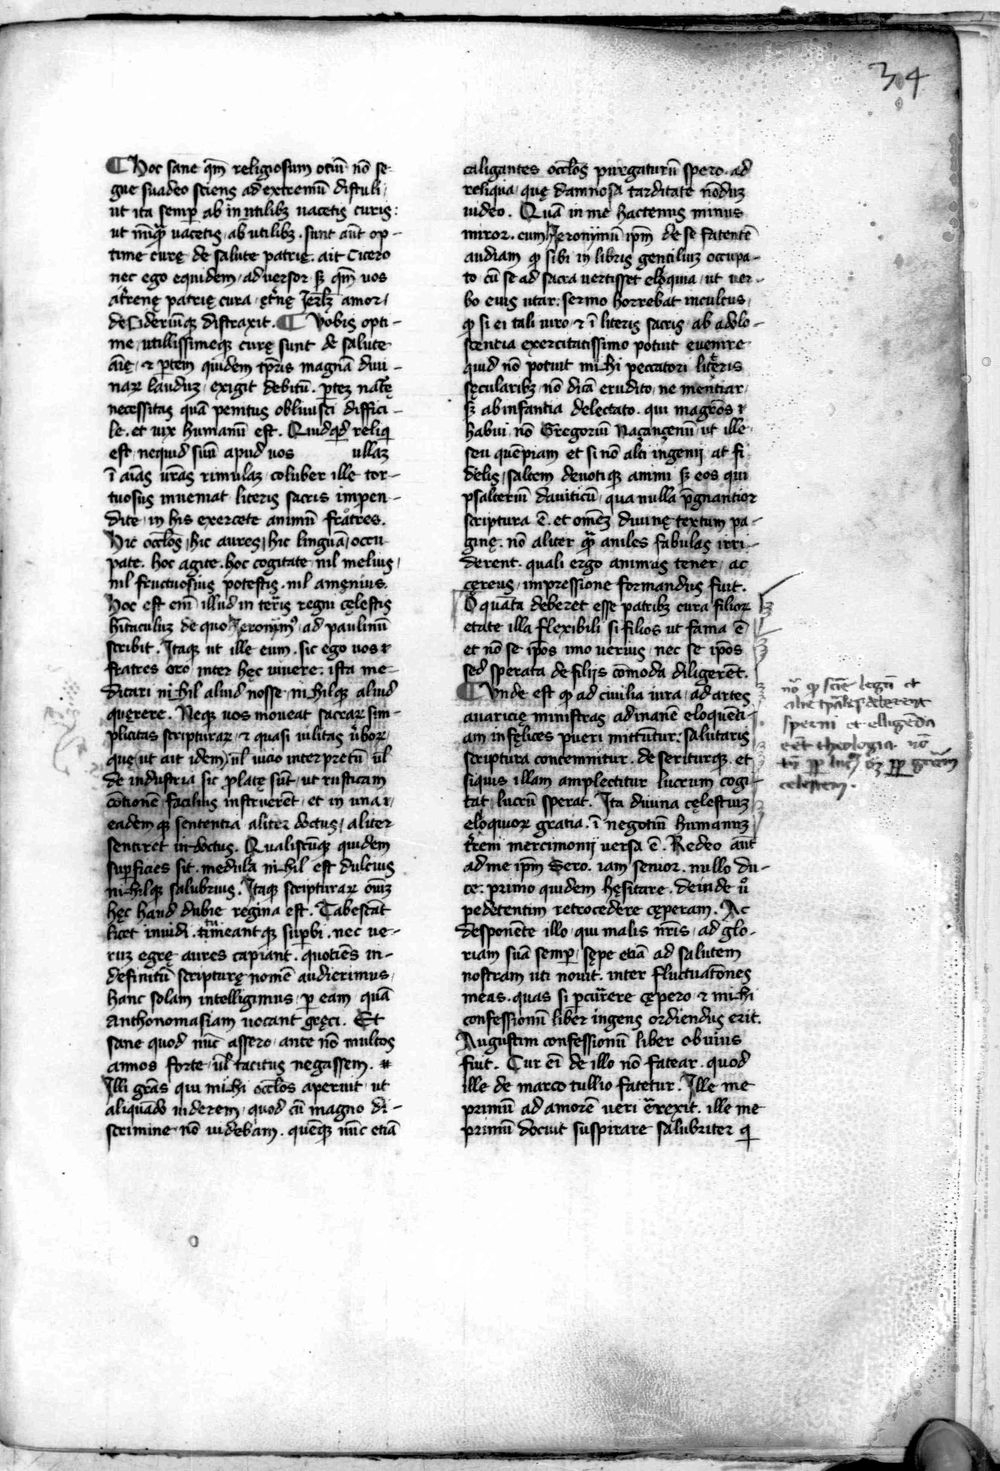 34
¶ Hoc sane qm̄ religiosum otiū nō se-
gne suadeo sciens ad extremū distuli,
ut ita semꝑ ab inutilibꝫ uacetis curis:
ut nūq̄ uacetis ab utilibꝫ. sunt aūt op-
time curę de salute patrię. ait Cicero
nec ego equidem, aduersor sꝫ qm̄ uos
at̄renę patrię cura, et̄nę Ierl̄ꝫ amor,
desideriūqꝫ distraxit. ¶ Vobis opti-
me, utillissimeqꝫ curę sunt de salute
aīe, ⁊ ꝑtem quidem tꝑris magnā diui-
naꝝ laudum, exigit debitū. ꝑtem nat̄ę
necessitas quā penitus obliuisci diffici-
le. et uix humanū est. Quidqͥd reliqͥ
est, nequid siuū apud uos ullaꝫ
ī aīas ūras rimulaꝫ coluber ille tor-
tuosus inueniat literis sacris impen-
dite, in his exercete animū fratres.
Hic ocl̄os, hic aures, hic linguā, occu
pate. hoc agite. hoc cogitate, nil melius,
nil fructuosius potestis. nil amęnius.
Hoc est em̄ illud in terris regni cęlestis
hītaculuꝫ de quo Ieronimꝰ, ad paulinū
scribit. Itaqꝫ ut ille eum, sic ego uos ⁊
fratres oro inter hęc uiuere: ista me-
ditari nihil aliud nosse nihilqꝫ aliud
quęrere. Neqꝫ uos moueat sacraꝝ sim-
plicitas scripturaꝝ, ⁊ quasi uilitas ūboꝝ
quę ut ait idem, ul̄ uicio interpretū ul̄
de industria sic ꝓlatę sūt, ut rusticam
cōtionē facilius instruerēt, et in una ⁊
eademqꝫ sententia aliter doctus, aliter
sentiret indoctus. Qualiscūqꝫ quidem
suꝑficies sit, medula nihil est dulcius
nihilqꝫ salubrius. Itaqꝫ scripturaꝝ oīuꝫ
hęc haud dubie regina est. Tabescāt
licet inuidi. timeantqꝫ suꝑbi, nec ue-
rum egrę aures capiant. quotiēs in-
definitū scripturę nomē audierimus,
hanc solam intelligimus, ꝑ eam, quā
Anthonomasiam uocant gręci. Et
sane quod nūc assero, ante nō multos
annos forte, ul̄ tacitus negassem.
Illi grās qui mihi ocl̄os aperuit, ut
aliquādo uiderem, quod cū magno di-
scrimine nō uidebam. quēqꝫ nūc etiā
caligantes ocl̄os purgaturū spero, ad
reliqua, quę damnosa tarditate nōduꝫ
uideo. Quā in me hactenus minus
miror. cum Ieronimū ip̄m de se fatentē
audiam qͥ sibi in libris gentiliuꝫ occupa-
to cū se ad sacra uertisset eloquia, ut uer-
bo eius utar, sermo horrebat incultus,
qͥ si ei tali uiro, ⁊ ī literis sacris, ab adolo-
scentia exercitatissimo potuit euenire
quid nō potuit mihi peccatori literis
sęcularibꝫ nō dicā erudito, ne mentiar,
sꝫ ab infantia delectato. qui magr̄os ⁊
habui, nō Gregoriū Naçançenū, ut ille
seu quēpiam et si nō alti ingenij, at fi
delis, saltem deuotiqꝫ animi, sꝫ eos qui
psalteriū dauiticū, qua nulla p̄gnantior
scriptura ē, et omēꝫ diuinę textum pa-
ginę, nō aliter qͣ aniles fabulas irri-
derent. quali ergo animus tener, ac
cęreus, impressione formandus fuit.
O quāta deberet esse patribꝫ cura filioꝝ
etate illa flexibili si filios ut fama ē
et nō se ip̄os imo uerius, nec se ip̄os
sed sperata de filijs cōmoda diligerēt.
¶ Vnde est qͥ ad ciuilia iura, ad artes
auaricię ministras ad inanē eloquēti-
am infęlices pueri mittūtur: salutaris
scriptura contemnitur, deseriturqꝫ. et
siquis illam amplectitur lucrum cogi-
tat, lucrū sperat. Ita diuina cęlestiuꝫ
eloquioꝝ gratia, ī negotiū humanuꝫ
t̄reni mercimonij uersa ē. Redeo aūt
ad me ip̄m Sero, iam senior, nullo du-
ce: primo quidem hęsitare, deinde u͛o
pedetentim retrocedere cęperam. Ac
desponēte illo, qui malis nr̄is, ad glo-
riam suā semꝑ, sępe etiā ad salutem
nostram uti nouit, inter fluctuatōnes
meas, quas si ꝑcur̄ere cępero, ⁊ mihi
confessionū liber ingens ordiendus erit.
Augustini confessionū liber obuius
fuit. Cur eī de illo nō fatear, quod
ille de marco tullio fatetur. Ille me
primū ad amorē ueri ērexit, ille me
primū docuit suspirare salubriter qͥ
nō qͥ scīe legū et
aliē tp̄ales deberent
sperni et eligēda
eēt theologia nō
tn̄ ꝓp lucꝝ sꝫ ꝓp gr̄am
celestem.